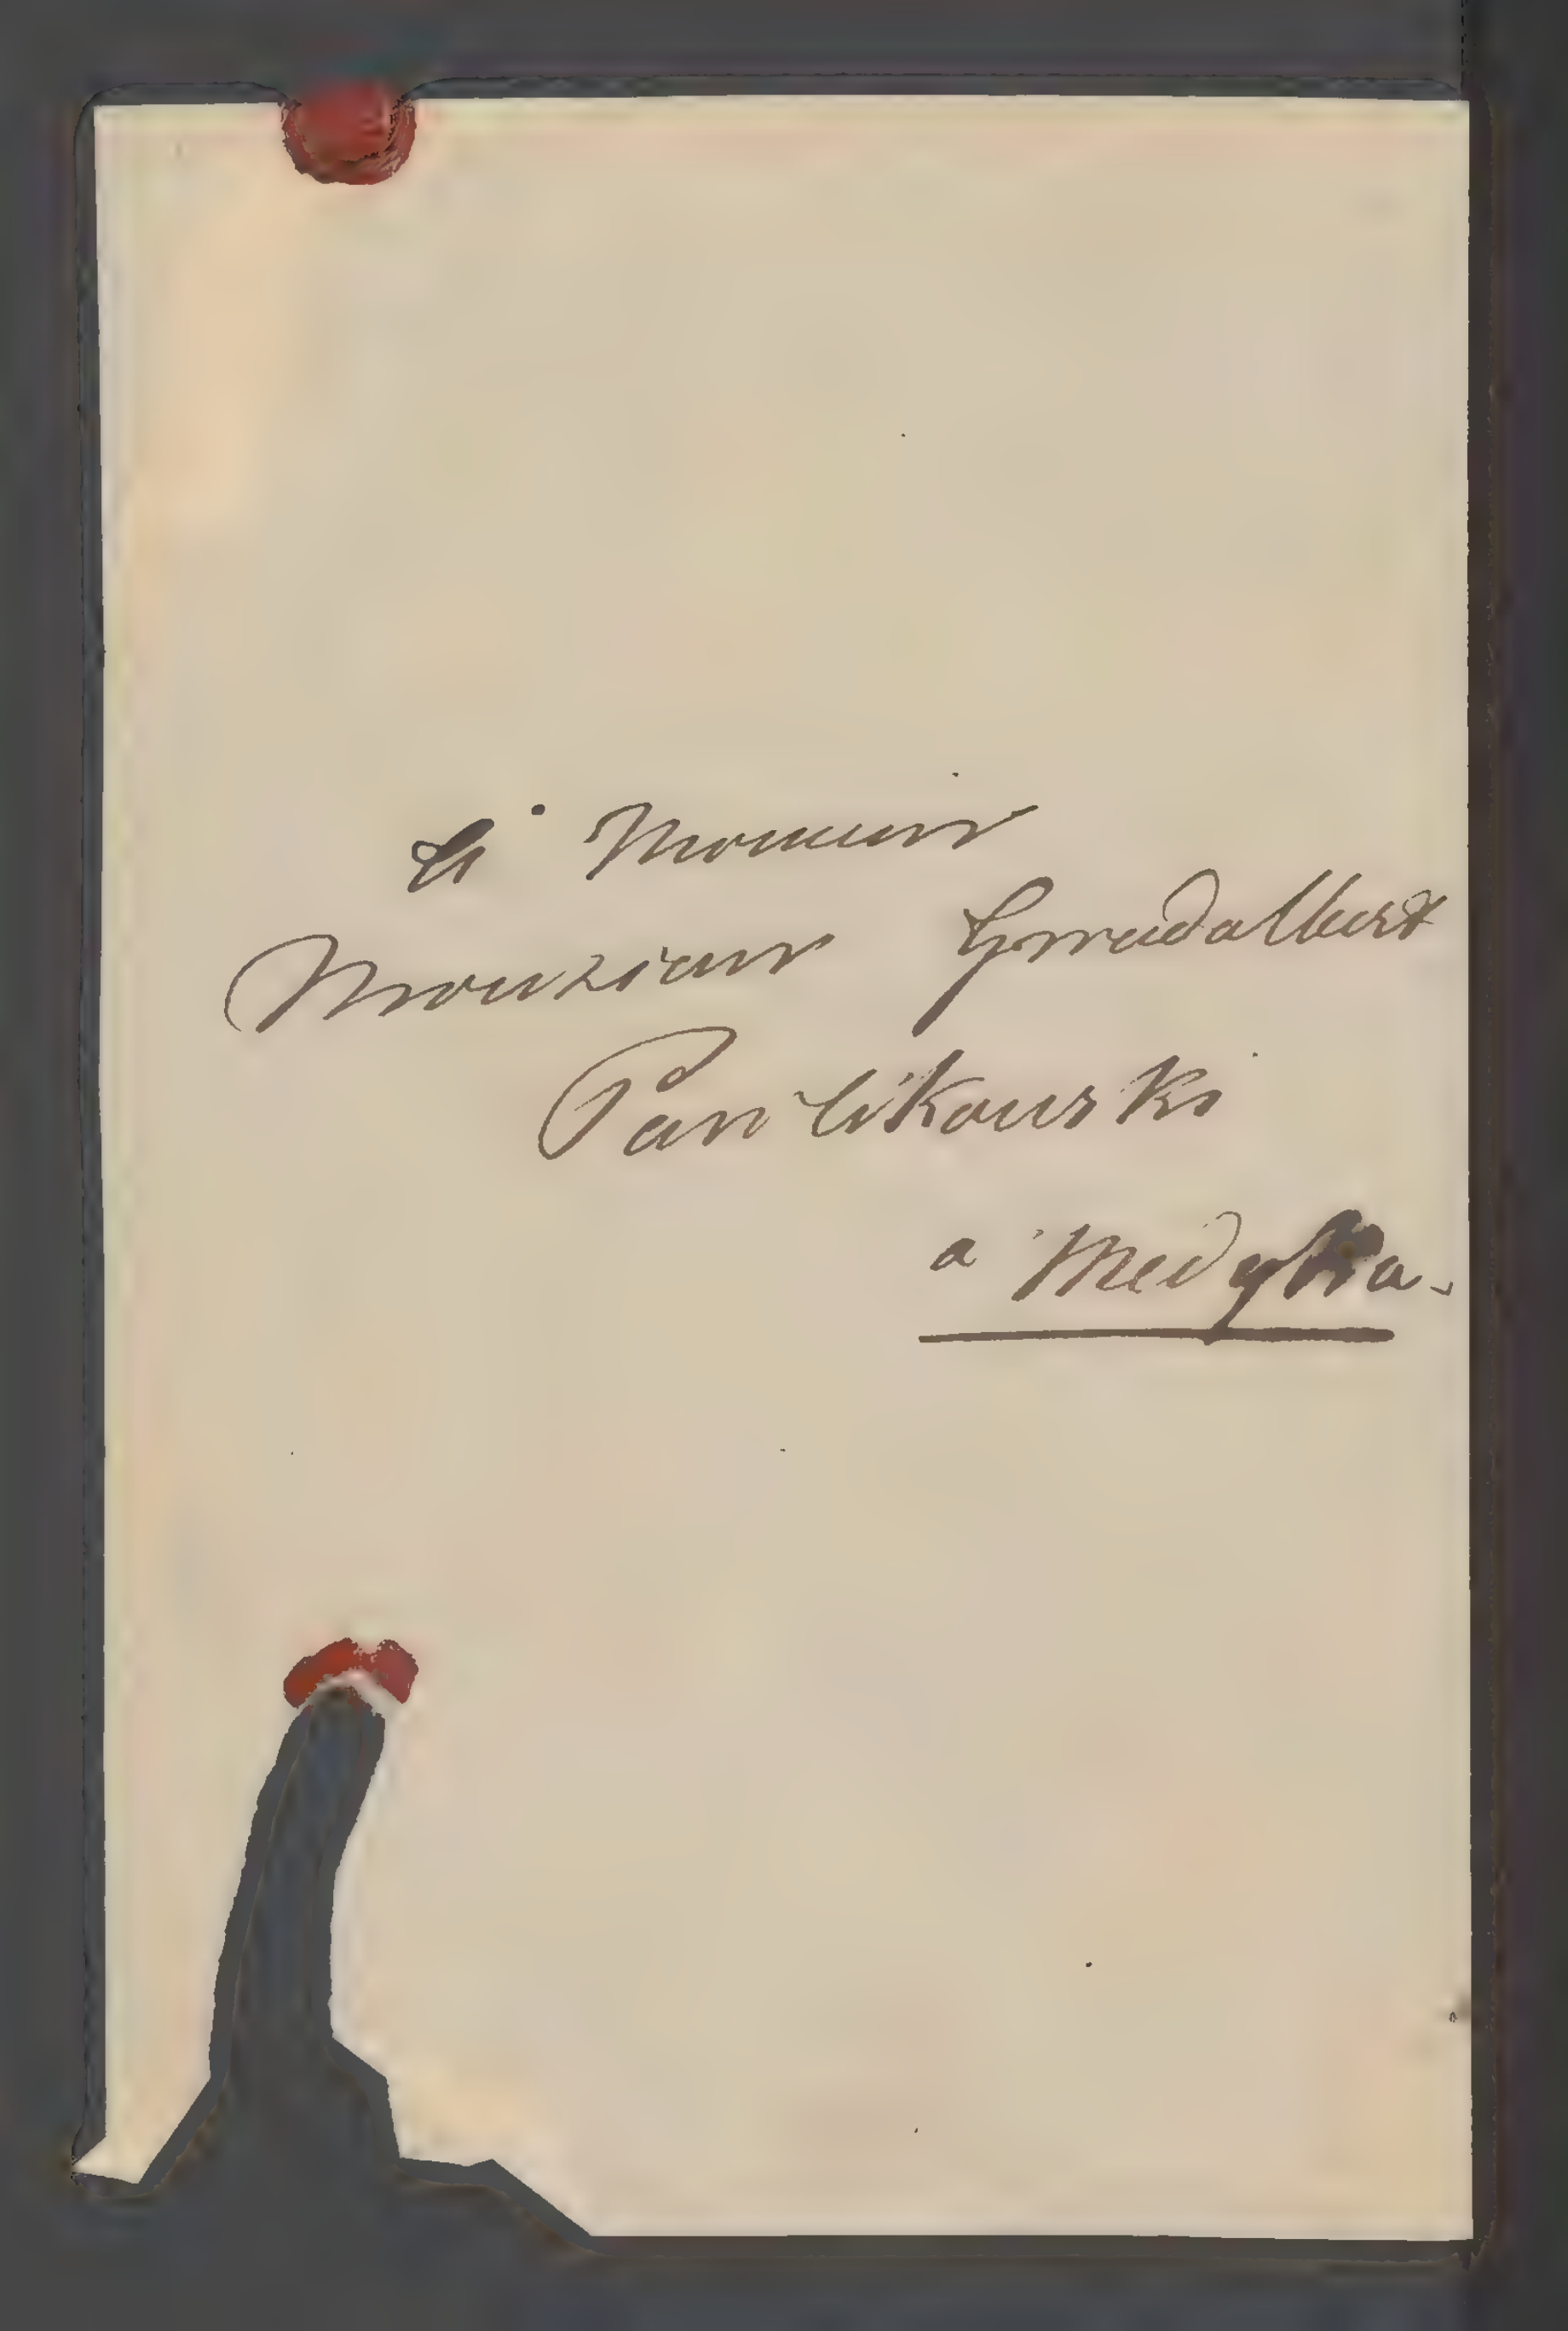 à Monsieur
Monsieur Gwadalbert
Pawlikowski
a Medyka.